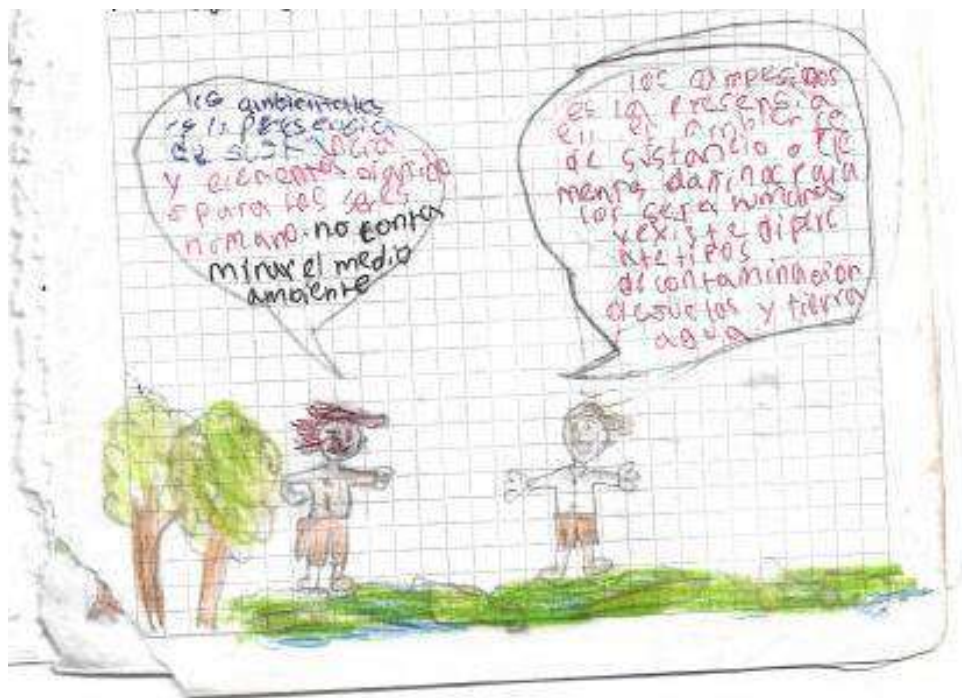 los ambientales
es la persencica
de sustancia
y elementos
para los seres
humano. no conta
minar el medio
ambiente
los campesinos
es la presensia
en el ambiente
de sustancio o ele
mento dañino para
los sera humanos
y existe difere
nte tipos
de contaminacion
de suelos y tierra
agua